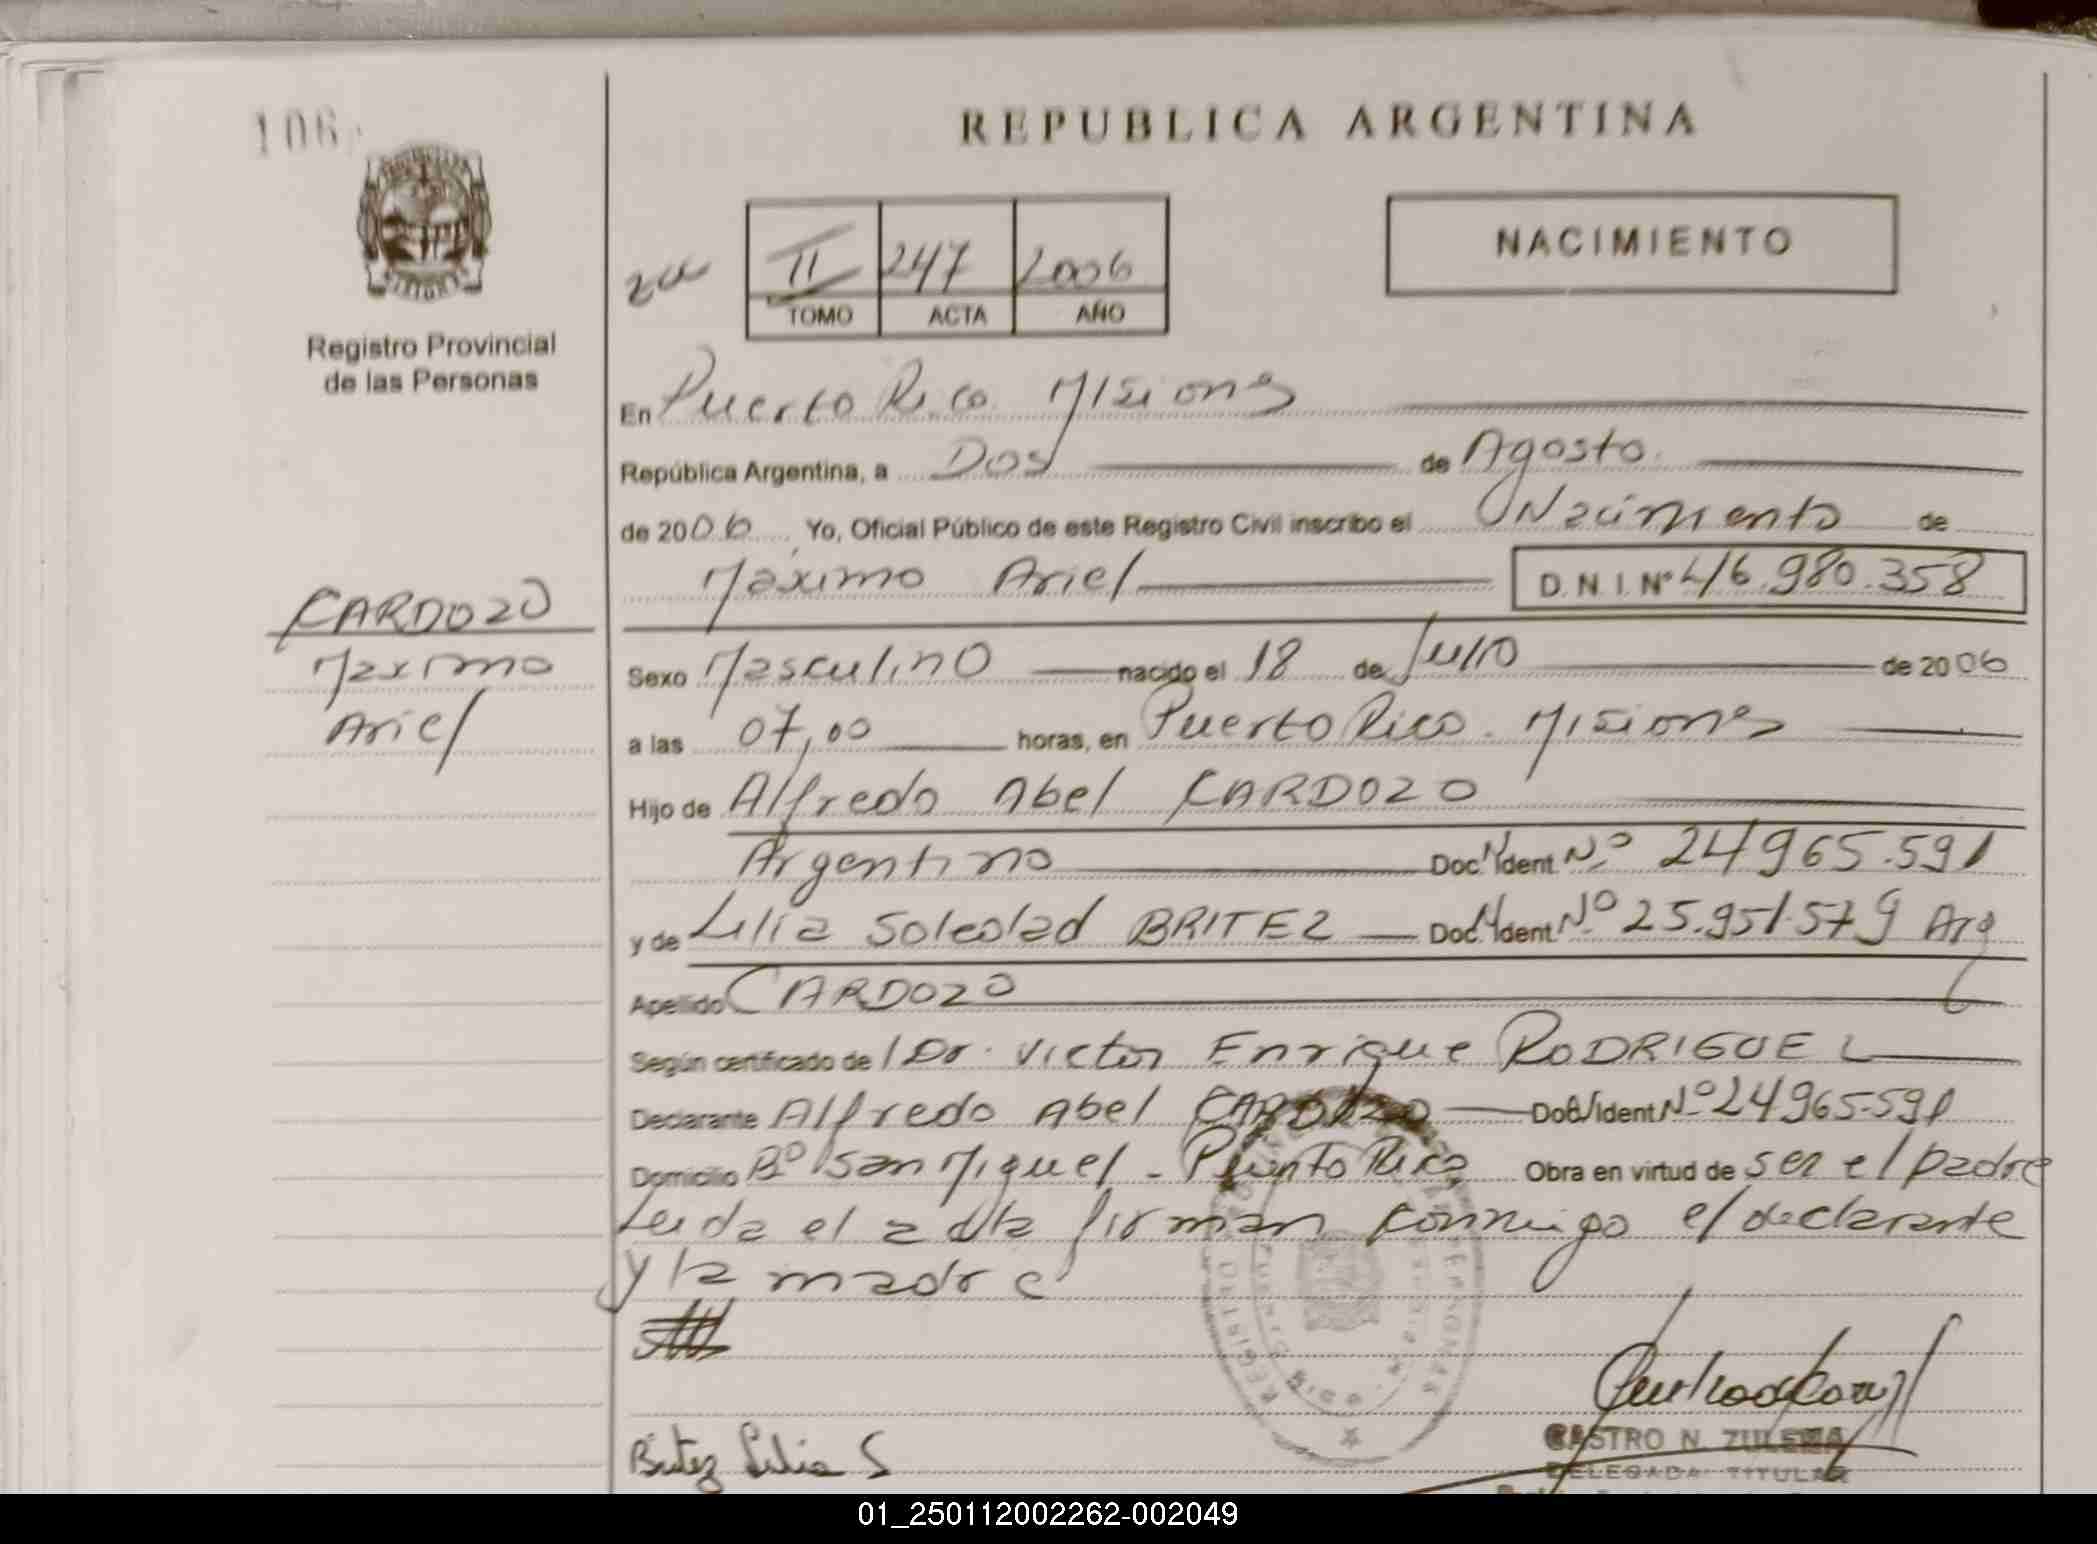 106
REPUBLICA ARGENTINA
NACIMIENTO
II 247 2006
TOMO ACTA AÑO
Registro Provincial
de las Personas
En Puerto Rico Misiones
República Argentina, a Dos de Agosto
de 2006, Yo, Oficial Público de este Registro Civil inscribo el Nacimiento de
Maximo Ariel D.N.I. Nº 46.980.358
CARDOZO
Maximo
Ariel
Sexo Masculino nacido el 18 de Julio de 2006
a las 07,00 horas, en Puerto Rico. Misiones
Hijo de Alfredo Abel CARDOZO
Argentino Doc. Ident. Nº 24965.591
y de Lilia Soledad BRITEZ Doc. Ident. Nº 25.951.579 Arg
Apellido CARDOZO
Según certificado de Dr. Victor Enrique RODRIGUEZ
Declarante Alfredo Abel CARDOZO Doc. Ident Nº 24965.591
Domicilio Bº San Miguel - Puerto Rico Obra en virtud de ser el padre
Leida el acta firman conmigo el declarante
y la madre
Britez Lilia S
CASTRO N. ZULEMA
DELEGADA TITULAR
01_250112002262-002049